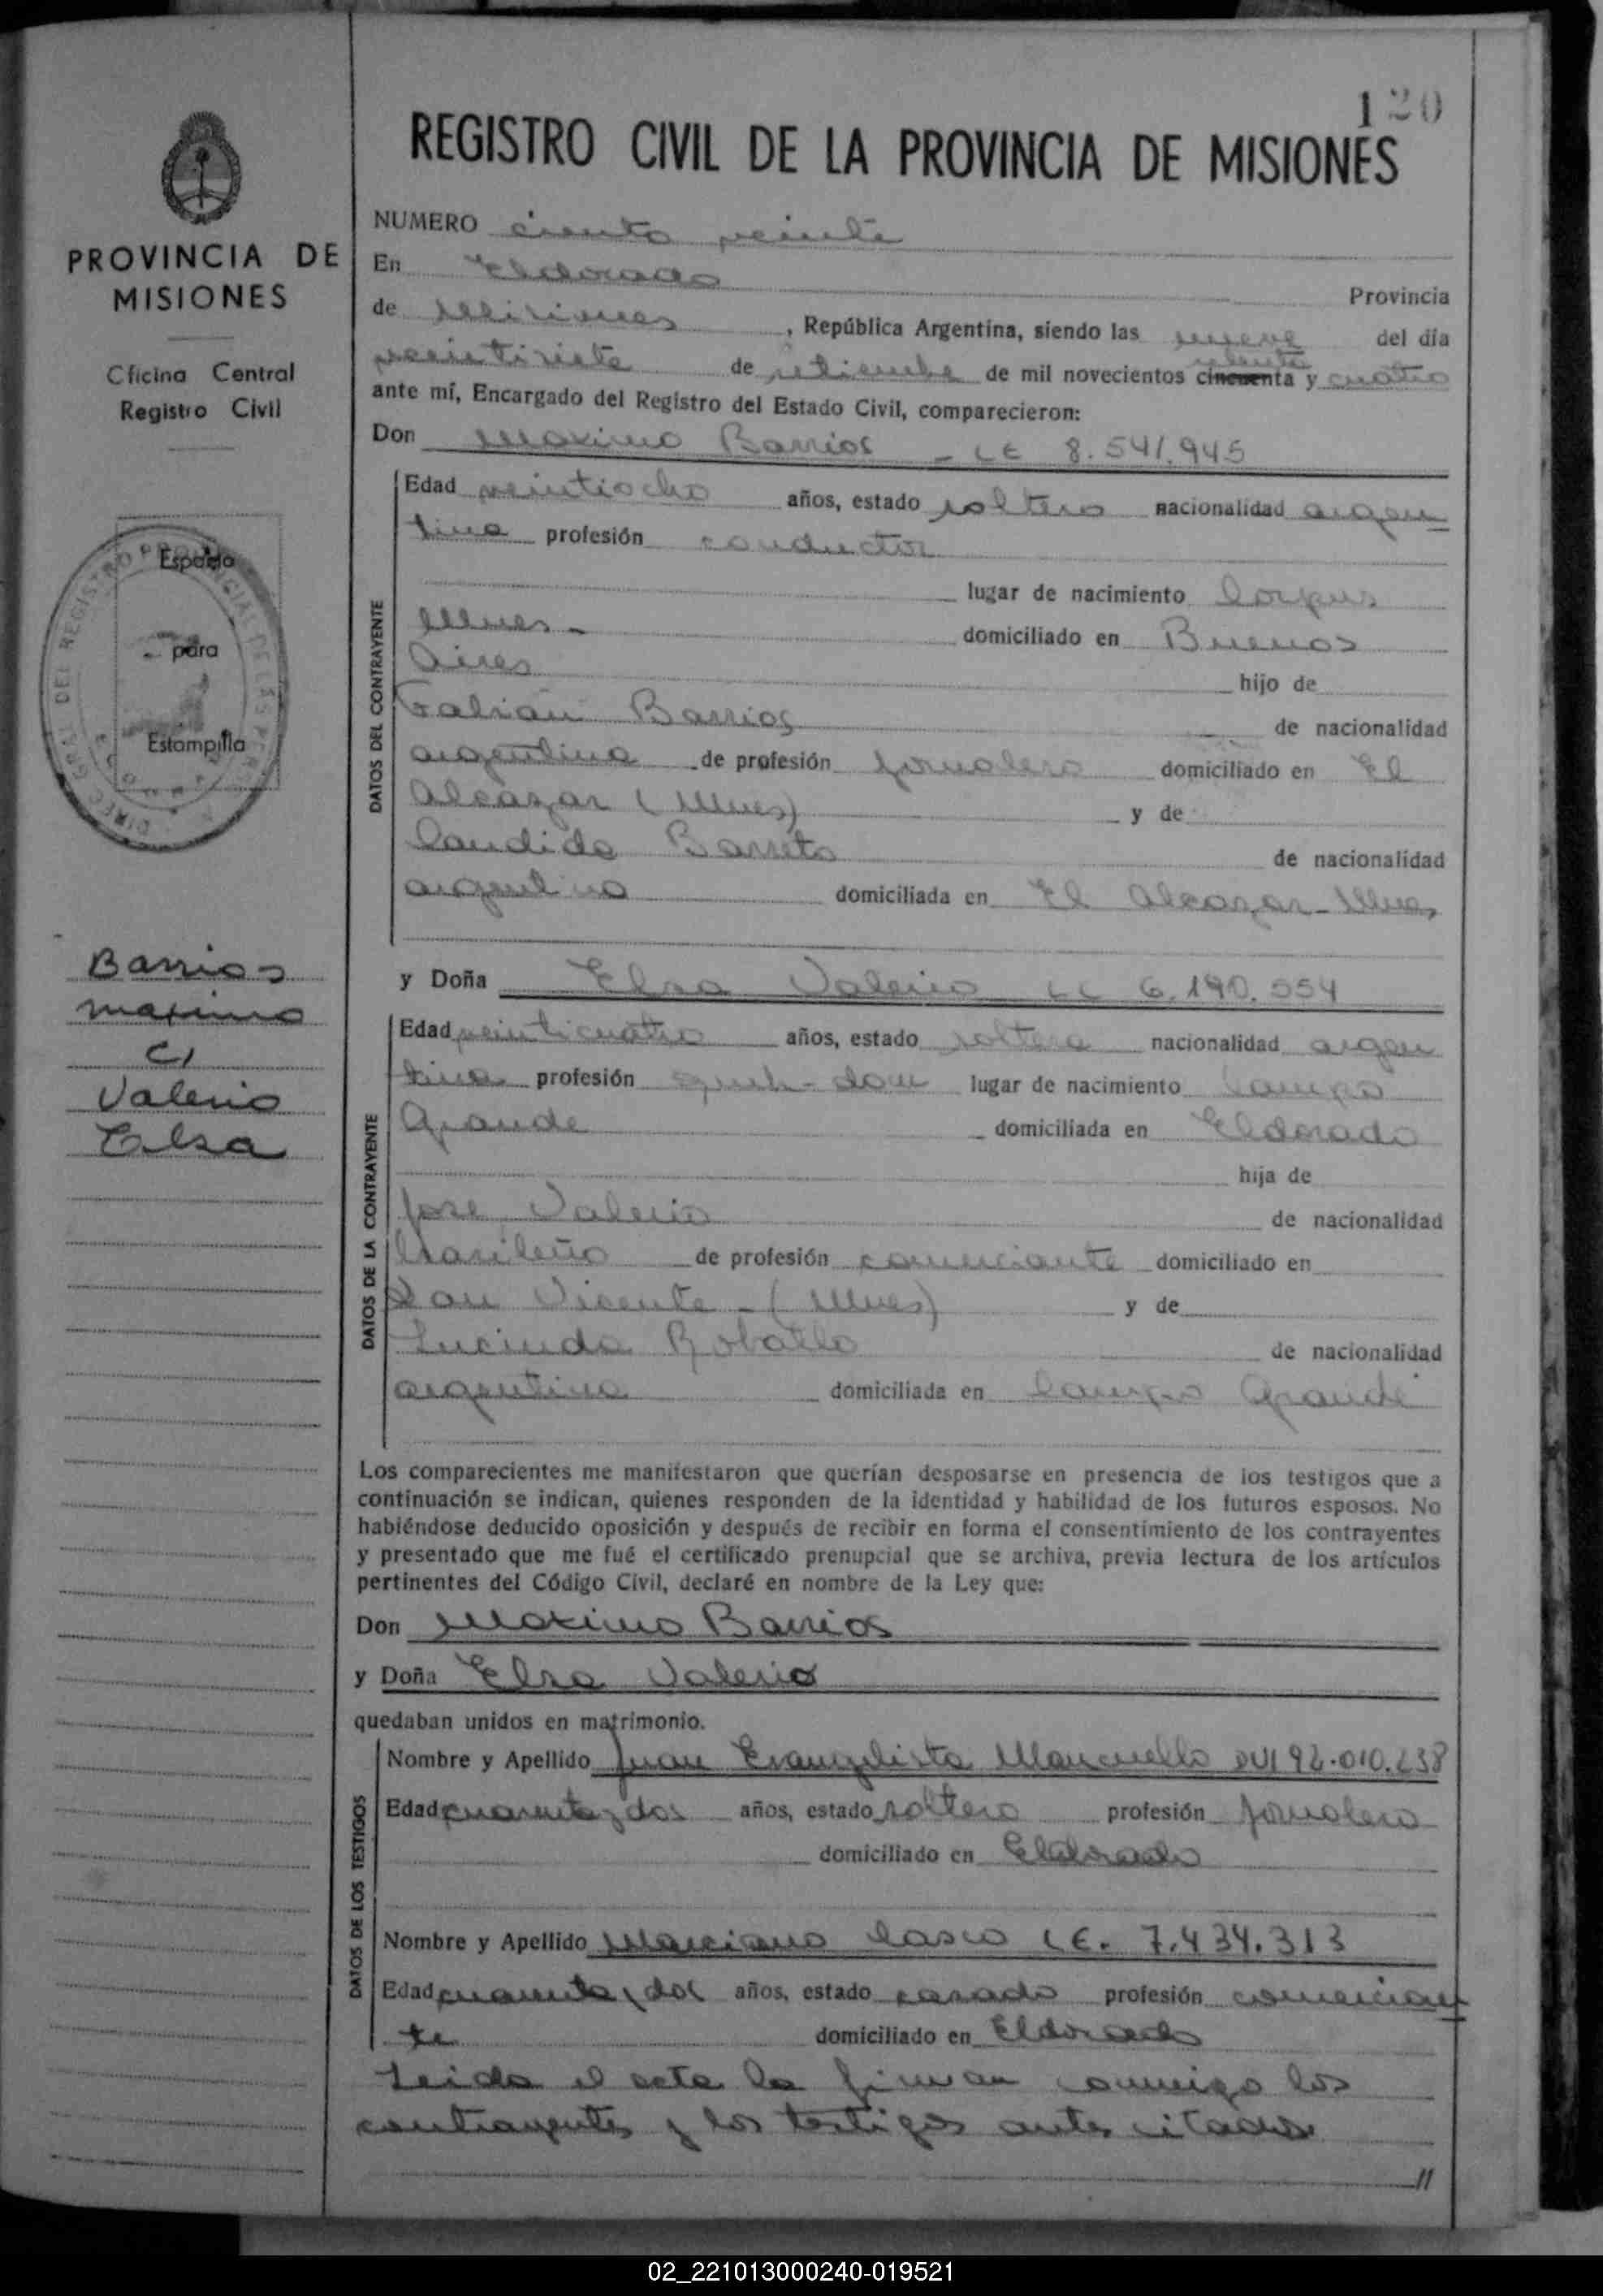 120
REGISTRO CIVIL DE LA PROVINCIA DE MISIONES
PROVINCIA DE
MISIONES
Oficina Central
Registro Civil
Espacio
para
Estampilla
Barrios
maximo
c/
Valerio
Elsa
NUMERO ciento veinte
En Eldorado Provincia
de Misiones, República Argentina, siendo las nueve del día
veintisiete de setiembre de mil novecientos cincuenta setenta y cuatro
ante mí, Encargado del Registro del Estado Civil, comparecieron:
Don Maximo Barrios - LE 8.541.945
DATOS DEL CONTRAYENTE
Edad veintiocho años, estado soltero nacionalidad argen
tina profesión conductor
lugar de nacimiento Corpus
Mnes - domiciliado en Buenos
Aires hijo de
Fabián Barrios de nacionalidad
argentina de profesión jornalero domiciliado en El
Alcazar (Mnes) y de
Candida Barreto de nacionalidad
argentina domiciliada en El Alcazar - Mnes
y Doña Elsa Valerio LC 6.190.554
DATOS DE LA CONTRAYENTE
Edad veinticuatro años, estado soltera nacionalidad argen
tina profesión lugar de nacimiento Campo
Grande domiciliada en Eldorado
hija de
Jose Valerio de nacionalidad
brasileño de profesión comerciante domiciliado en
San Vicente - (Mnes) y de
Lucinda de nacionalidad
argentina domiciliada en Campo Grande
Los comparecientes me manifestaron que querían desposarse en presencia de los testigos que a
continuación se indican, quienes responden de la identidad y habilidad de los futuros esposos. No
habiéndose deducido oposición y después de recibir en forma el consentimiento de los contrayentes
y presentado que me fué el certificado prenupcial que se archiva, previa lectura de los artículos
pertinentes del Código Civil, declaré en nombre de la Ley que:
Don Maximo Barrios
y Doña Elsa Valerio
quedaban unidos en matrimonio.
DATOS DE LOS TESTIGOS
Nombre y Apellido Juan Evangelista Mancuello DNI 92.010.238
Edad cuarenta y dos años, estado soltero profesión jornalero
domiciliado en Eldorado
Nombre y Apellido Marciano Casco LE. 7.434.313
Edad cuarenta y dos años, estado casado profesión comercian
te domiciliado en Eldorado
Leida el acta la firman conmigo los
contrayentes y los testigos antes citados
//
02_221013000240-019521